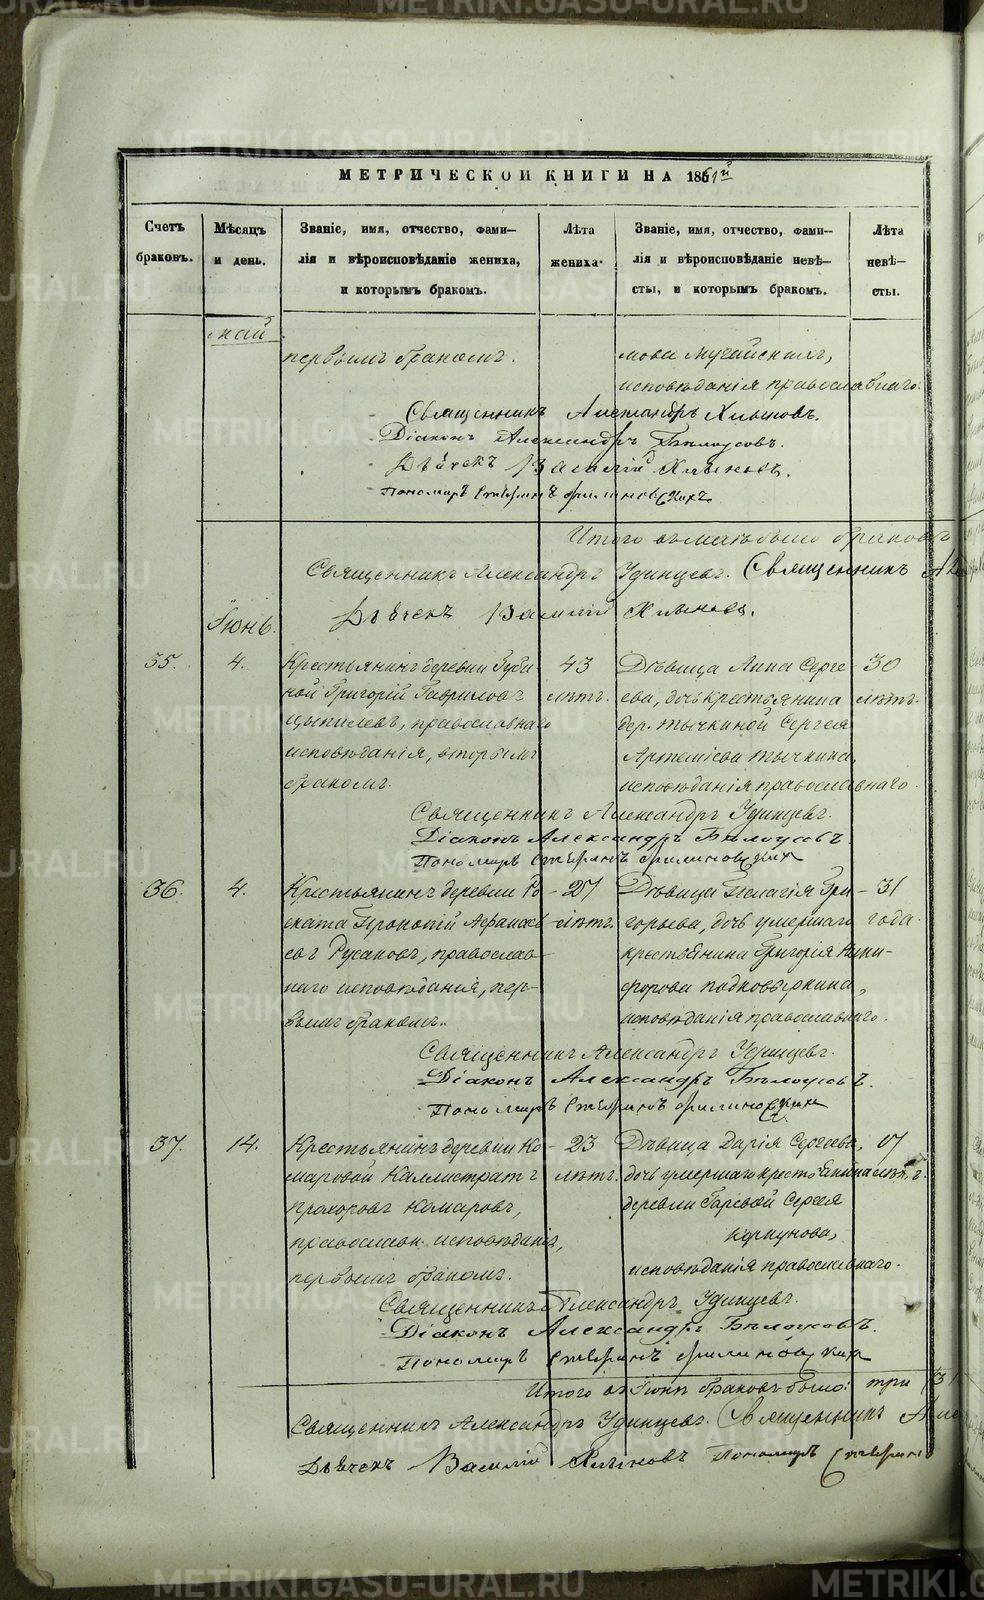 МЕТРИЧЕСКОЙ КНИГИ НА 1861й
Счетъ браковъ.
Мѣсяцъ и день.
Званіе, имя, отчество, фами-
лія и вѣроисповѣданіе жениха,
и которымъ бракомъ.
Лѣта жениха.
Званіе, имя, отчество, фами-
лія и вѣроисповѣданіе невѣ-
сты, и которымъ бракомъ.
Лѣта невѣ-
сты.
май
первымъ бракомъ.
исповѣданія православнаго.
Священникъ Александръ Хлыновъ.
Діаконъ Александръ Бѣлоусовъ.
Дьячекъ Василій Хлыновъ.
Пономарь
Итого въ маѣ было браковъ
Священникъ Александръ Удинцевъ. Священникъ
Дьячекъ Василій Хлыновъ.
Іюнь.
35.
4.
Крестьянинъ деревни Губи-
ной Григорій Гавриловъ
Цыпилевъ, православнаго
исповѣданія, вторымъ
бракомъ.
43
лѣтъ.
Дѣвица Анна Серге-
ева, дочь крестьянина
дер. Тычкиной Сергея
Артеміева Тычкина,
исповѣданія православнаго.
30
лѣтъ.
Священникъ Александръ Удинцевъ.
Діаконъ Александръ Бѣлоусовъ.
Пономарь
36.
4.
Крестьянинъ деревни Ро-
ската Прокопій Афанась-
евъ Русаковъ, православ-
наго исповѣданія, пер-
вымъ бракомъ.
27
лѣтъ.
Дѣвица Пелагія Гри-
горьева, дочь умершаго
крестьянина Григорія Ники-
форова Подковыркина,
исповѣданія православнаго.
31
года.
Священникъ Александръ Удинцевъ.
Діаконъ Александръ Бѣлоусовъ.
Пономарь
37.
14.
Крестьянинъ деревни Ко-
маровой Каллистратъ
Прохоровъ Комаровъ,
православн. исповѣданія,
первымъ бракомъ.
23
лѣтъ.
Дѣвица Дарія Сергеева,
дочь умершаго крестьянина
деревни Гаревой Сергея
Коркунова,
исповѣданія православнаго.
17
лѣтъ.
Священникъ Александръ Удинцевъ.
Діаконъ Александръ Бѣлоусовъ.
Пономарь
Итого въ Іюнѣ браковъ было: три (3)
Священникъ Александръ Удинцевъ. Священникъ
Дьячекъ Василій Хлыновъ Пономарь
METRIKI.GASO-URAL.RU